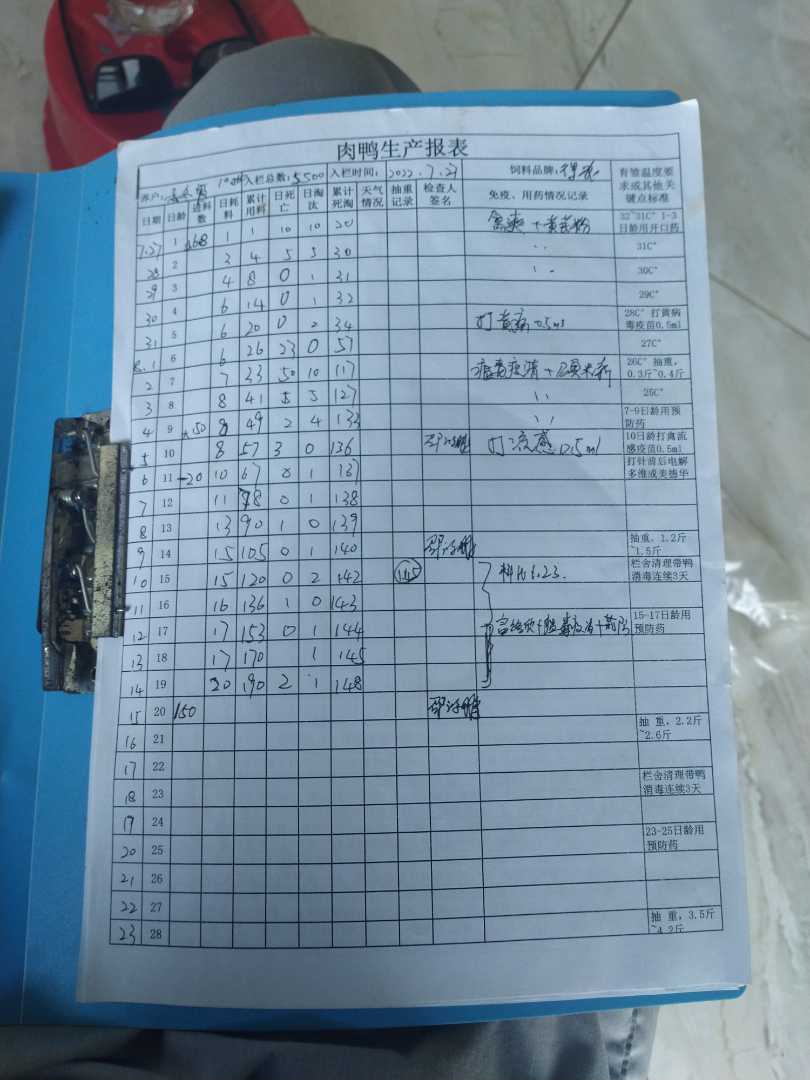 肉鸭生产报表
养户: 入栏总数:5500 入栏时间: 2022.7.27 饲料品牌: 育雏温度要求或其他关键点标准
日期 日龄 进料数 日耗料 累计用料 日死亡 日淘汰 累计死淘 天气情况 抽重记录 检查人签名 免疫、用药情况记录
7.27 1 168 1 1 10 10 20 禽爽+黄芪粉 32~31C° 1-3日龄用开口药
28 2 3 4 5 5 30 〃 31C°
29 3 4 8 0 1 31 〃 30C°
30 4 6 14 0 1 32 29C°
31 5 6 20 0 2 34 打黄病0.5ml 28C° 打黄病毒疫苗0.5ml
8.1 6 6 26 23 0 57 27C°
2 7 7 33 50 10 117 26C° 抽重,0.3斤~0.4斤
3 8 8 41 5 5 127 〃 25C°
4 9 150 8 49 2 4 133 〃 7-9日龄用预防药
5 10 8 57 3 0 136 打流感0.5ml 10日龄打禽流感疫苗0.5ml
6 11 -20 10 67 0 1 137 打针前后电解多维或美德华
7 12 11 78 0 1 138
8 13 13 90 1 0 139
9 14 15 105 0 1 140 抽重、1.2斤~1.5斤
10 15 15 120 0 2 142 1.45 料比1.23. 栏舍清理带鸭消毒连续3天
11 16 16 136 1 0 143
12 17 17 153 0 1 144 15-17日龄用预防药
13 18 17 170 1 145
14 19 20 190 2 1 148
15 20 150
16 21 抽 重, 2.2斤~2.6斤
17 22
18 23 栏舍清理带鸭消毒连续3天
19 24
20 25 23-25日龄用预防药
21 26
22 27
23 28 抽 重, 3.5斤~4.2斤